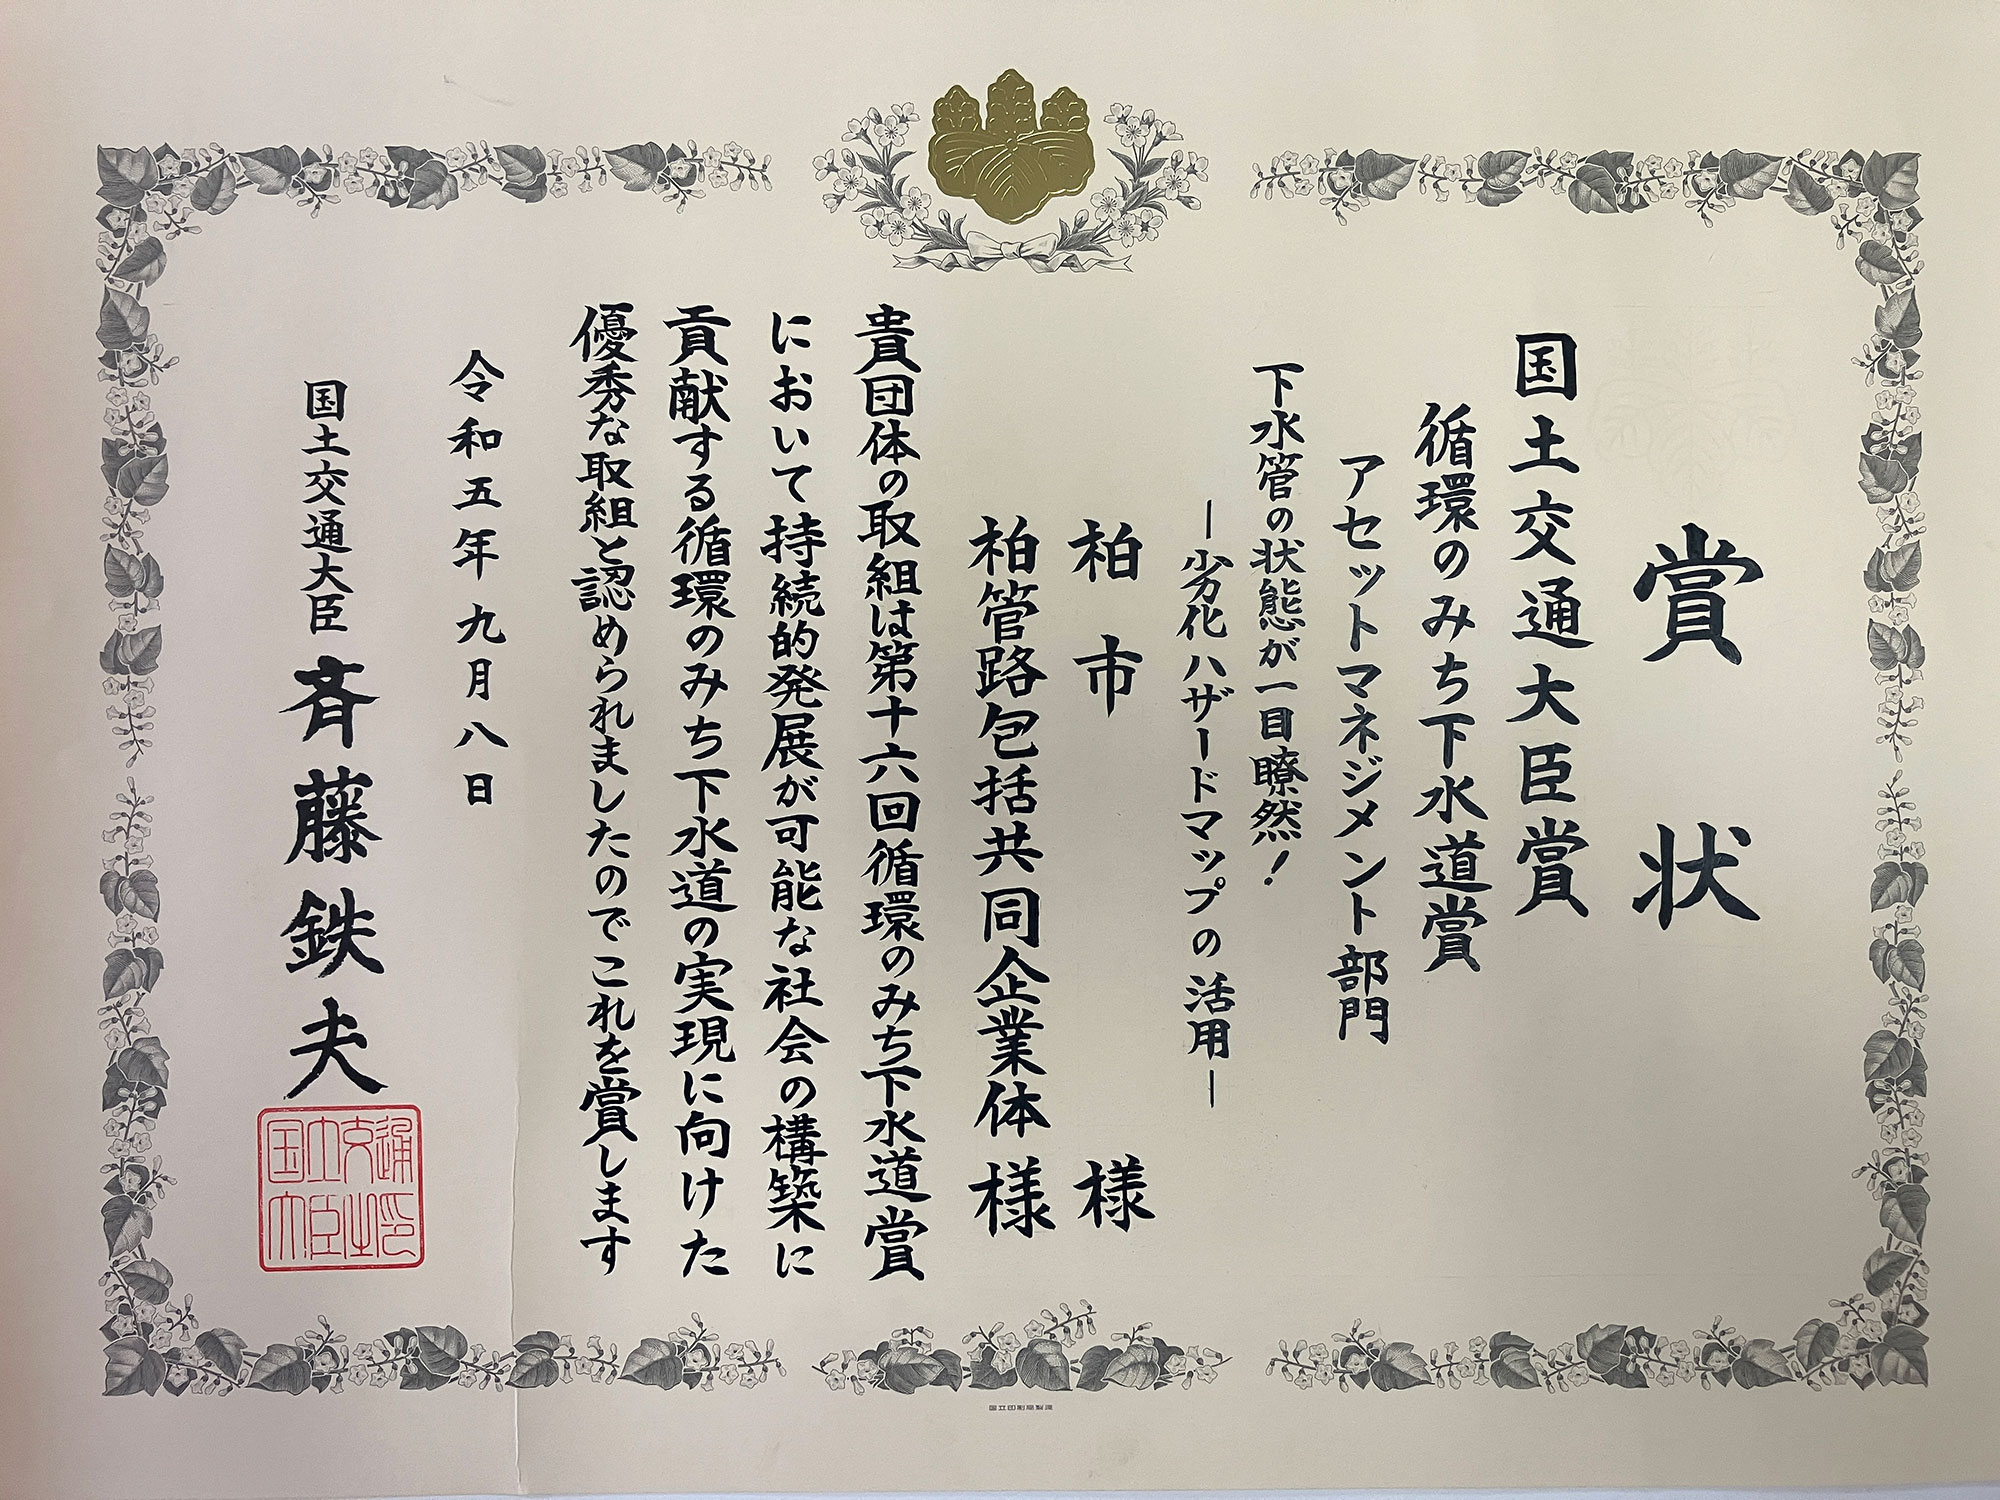 賞状
国土交通大臣賞
循環のみち下水道賞
アセットマネジメント部門
下水管の状態が一目瞭然！
―劣化ハザードマップの活用―
柏市様
柏管路包括共同企業体様
貴団体の取組は第十六回循環のみち下水道賞
において持続的発展が可能な社会の構築に
貢献する循環のみち下水道の実現に向けた
優秀な取組と認められましたのでこれを賞します
令和五年九月八日
国土交通大臣 斉藤鉄夫
国土交通大臣之印
国立印刷局製造